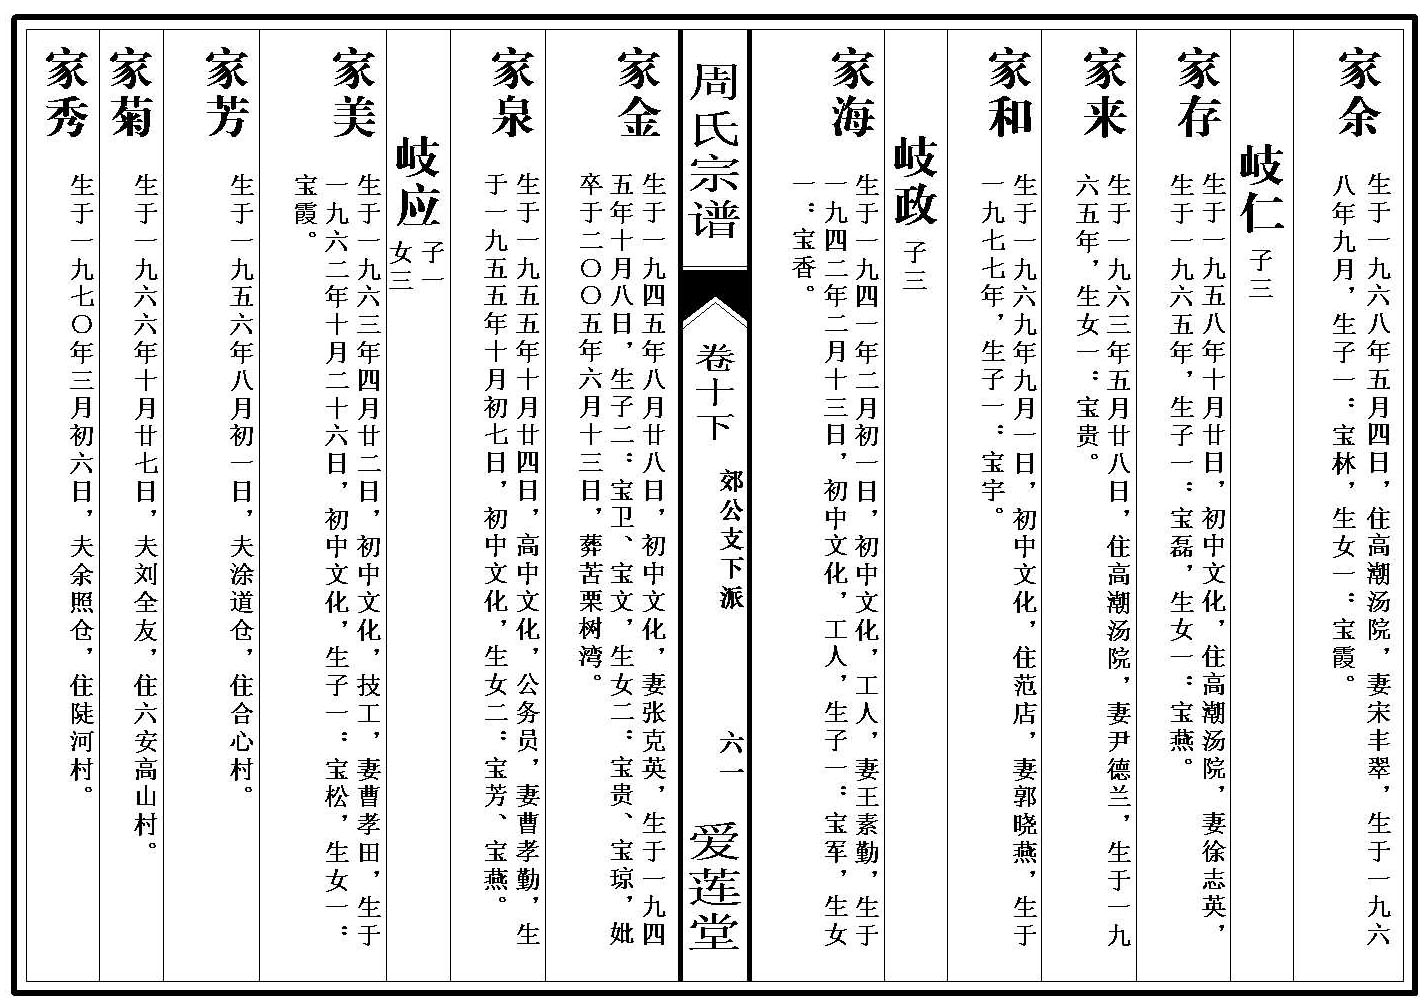 家余
生于一九六八年五月四日，住高潮汤院，妻宋丰翠，生于一九六
八年九月，生子一：宝林，生女一：宝霞。
岐仁
子三
家存
生于一九五八年十月廿日，初中文化，住高潮汤院，妻徐志英，
生于一九六五年，生子一：宝磊，生女一：宝燕。
家来
生于一九六三年五月廿八日，住高潮汤院，妻尹德兰，生于一九
六五年，生女一：宝贵。
家和
生于一九六九年九月一日，初中文化，住范店，妻郭晓燕，生于
一九七七年，生子一：宝宇。
岐政
子三
家海
生于一九四一年二月初一日，初中文化，工人，妻王素勤，生于
一九四二年二月十三日，初中文化，工人，生子一：宝军，生女
一：宝香。
周氏宗谱
卷十下
郊公支下派
六一
爱莲堂
家金
生于一九四五年八月廿八日，初中文化，妻张克英，生于一九四
五年十月八日，生子二：宝卫、宝文，生女二：宝贵、宝琼，妣
卒于二〇〇五年六月十三日，葬苦栗树湾。
家泉
生于一九五五年十月廿四日，高中文化，公务员，妻曹孝勤，生
于一九五五年十月初七日，初中文化，生女二：宝芳、宝燕。
岐应
子一
女三
家美
生于一九六三年四月廿二日，初中文化，技工，妻曹孝田，生于
一九六二年十月二十六日，初中文化，生子一：宝松，生女一：
宝霞。
家芳
生于一九五六年八月初一日，夫涂道仓，住合心村。
家菊
生于一九六六年十月廿七日，夫刘全友，住六安高山村。
家秀
生于一九七〇年三月初六日，夫余照仓，住陡河村。